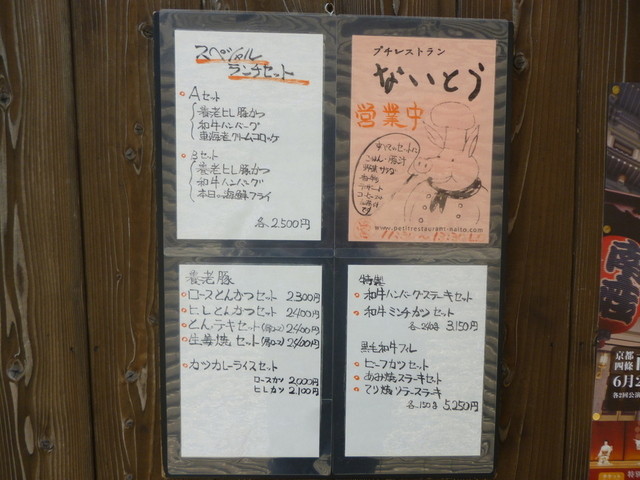 スペシャル
ランチセット
Aセット
養老ヒレ豚かつ
和牛ハンバーグ
東海老クリームコロッケ
Bセット
養老ヒレ豚かつ
和牛ハンバーグ
本日の海鮮フライ
各、2,500円
プチレストラン
ないとう
営業中
すべてのセットに
ごはん・豚汁
野菜サラダ
デザート
www.petitrestaurant-naito.com
養老豚
ロースとんかつセット 2,300円
ヒレとんかつセット 2,400円
とんテキセット(肩ロース) 2,400円
生姜焼セット(肩ロース) 2,400円
カツカレーライスセット
ロースカツ 2,000円
ヒレカツ 2,100円
特製
和牛ハンバーグステーキセット
和牛ミンチカツセット
各、240g 3,150円
黒毛和牛フィレ
ビーフカツセット
あみ焼ステーキセット
てり焼ソテーステーキ
各、120g 5,250円
京都
四條
6月2
各2回公演